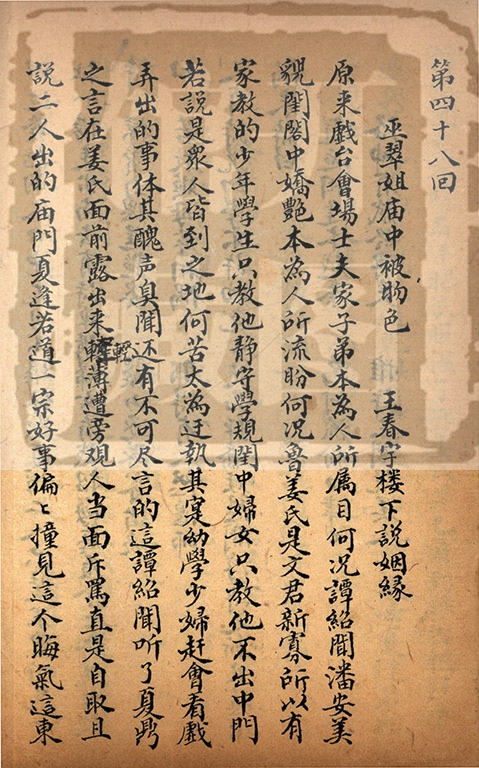 第四十八回
巫翠姐庙中被物色　王春宇楼下説姻縁
原来戲台會場士夫家子弟本為人所属目何况譚紹聞潘安美
貌閨閣中嬌艶本為人所流盼何况魯姜氏是文君新寡所以有
家教的少年學生只教他静守學規閨中婦女只教他不出中門
若説是衆人皆到之地何苦太為迂執其寔幼學少婦赶會看戲
弄出的事体其醜声臭聞还有不可尽言的這譚紹聞听了夏鼎
之言在姜氏面前露出来輕薄遭旁观人当面斥罵直是自取且
説二人出的庙門夏逢若道一宗好事偏〻撞見這个晦氣這東